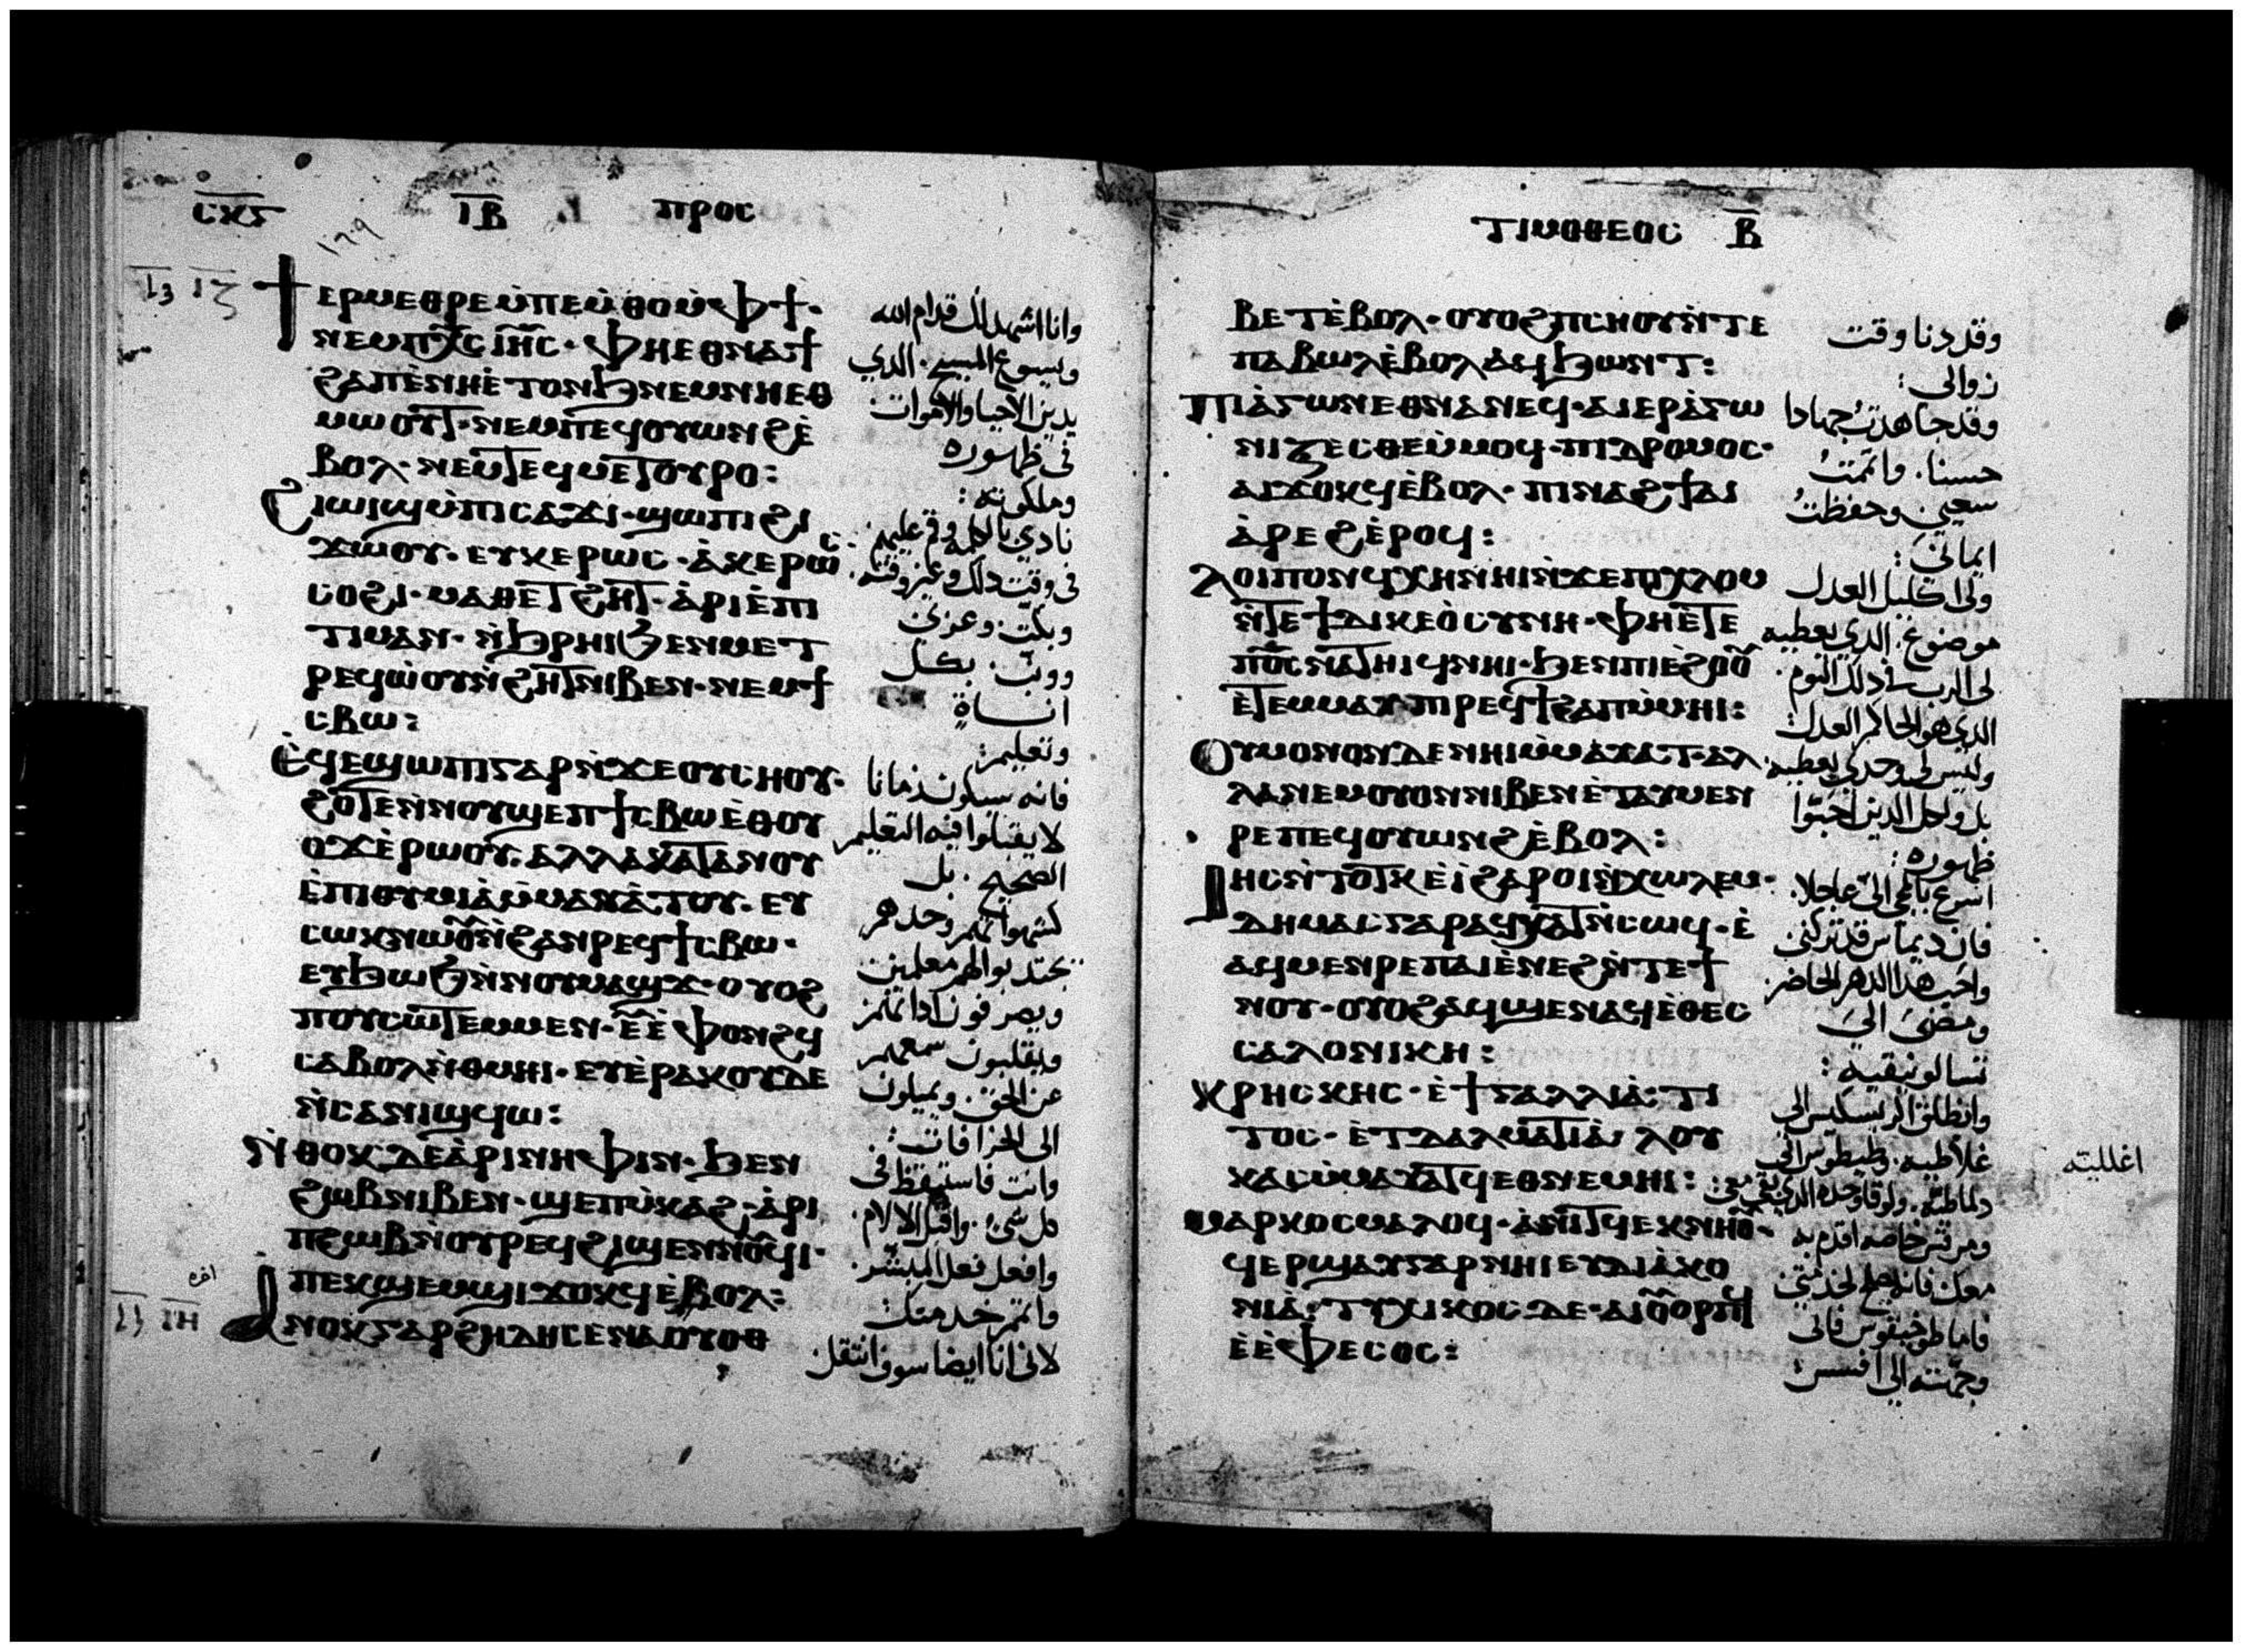 ⲥⲕⲋ ⲓⲃ ⲡⲣⲟⲥ
ϯⲉⲣⲙⲉⲑⲣⲉ ⲙ̀ⲡⲉⲙ̀ⲑⲟ ⲙ̀ⲫϯ·
ⲛⲉⲙ ⲡⲭ̅ⲥ̅ ⲓⲏ̅ⲥ̅· ⲫⲏⲉⲑⲛⲁϯ
ϩⲁⲡ ⲉ̀ⲛⲏⲉ̀ⲧⲟⲛϧ ⲛⲉⲙ ⲛⲏⲉⲑ
ⲙⲱⲟⲩⲧ· ⲛⲉⲙ ⲡⲉϥⲟⲩⲱⲛϩ ⲉ̀
ⲃⲟⲗ· ⲛⲉⲙ ⲧⲉϥⲙⲉⲧⲟⲩⲣⲟ:
ϩⲓⲱⲓϣ ⲙ̀ⲡⲓⲥⲁϫⲓ· ϣⲱⲡⲓ ϩⲓ
ϫⲱⲟⲩ· ⲉⲩⲕⲉⲣⲱⲥ· ⲁ̀ⲕⲉⲣⲱⲥ
ⲥⲟϩⲓ· ⲙⲁⲑⲉⲧ ⲡ̀ϩⲏⲧ· ⲁ̀ⲣⲓⲉ̀ⲡⲓ
ⲧⲓⲙⲁⲛ· ⲛ̀ϧⲣⲏⲓ ϧⲉⲛ ⲙⲉⲧ
ⲣⲉϥⲱ̀ⲟⲩⲛ̀ϩⲏⲧ ⲛⲓⲃⲉⲛ· ⲛⲉⲙ ϯ
ⲥⲃⲱ:
ⲉ̀ϥⲉϣⲱⲡⲓ ⲅⲁⲣ ⲛ̀ϫⲉ ⲟⲩⲥⲏⲟⲩ·
ϩⲟⲧⲉ ⲛ̀ⲛⲟⲩϣⲉⲡ ϯⲥⲃⲱ ⲉ̀ⲑⲟⲩ
ⲟϫ ⲉ̀ⲣⲱⲟⲩ· ⲁⲗⲗⲁ ⲕⲁⲧⲁ ⲛⲟⲩ
ⲉ̀ⲡⲓⲑⲩⲙⲓⲁ̀ ⲙ̀ⲙⲁⲩⲁ̀ⲧⲟⲩ· ⲉⲩ
ⲥⲱⲕ ⲛⲱⲟⲩ ⲛ̀ϩⲁⲛⲣⲉϥϯⲥⲃⲱ·
ⲉⲩϧⲱϧ ⲛ̀ⲛⲟⲩⲙⲁϣϫ· ⲟⲩⲟϩ
ⲡⲟⲩⲥⲱⲧⲉⲙ ⲙⲉⲛ· ⲉⲩⲉ̀ⲫⲟⲛϩϥ
ⲥⲁⲃⲟⲗ ⲛ̀ⲑⲙⲏⲓ· ⲉⲩⲉ̀ⲣⲁⲕⲟⲩ ⲇⲉ
ⲛ̀ⲥⲁ ⲛⲓϣϥⲱ:
ⲛ̀ⲑⲟⲕ ⲇⲉ ⲁ̀ⲣⲓⲛⲏⲫⲓⲛ· ϧⲉⲛ
ϩⲱⲃ ⲛⲓⲃⲉⲛ· ϣⲉⲡⲙ̀ⲕⲁϩ· ⲁ̀ⲣⲓ
ⲡϩⲱⲃ ⲛ̀ⲟⲩⲣⲉϥϩⲓϣⲉⲛⲛⲟⲩϥⲓ·
ⲡⲉⲕϣⲉⲙϣⲓ ϫⲟⲕϥ ⲉ̀ⲃⲟⲗ:
ⲁⲛⲟⲕ ⲅⲁⲣ ϩⲏⲇⲏ ⲥⲉⲛⲁⲟⲩⲟⲑ
وانا اشهد لك قدام الله
ويسوع المسيح. الدي
يدين الاحيا والاموات
فى ظهوره
وملكوته:
نادي بالكلمه وقم عليهم
فى وقت دلك وغير وقته
وبكّت. وعزى
ووبّ. بكل
اناةٍ
وتعليم:
فانه سيكون زمانا
لا يقبلوا فيه التعليم
الصحيح. بل
كشهواتهم وحدهم
يجتدبوا لهم معلمين
ويصرفون ادانهم
ويقلبون سمعهم
عن الحق. ويميلون
الى الخرافات:
وانت فاستيقظ فى
كل شى. واقبل الالام.
وافعل فعل المبشر.
واتمم خدمتك
لانى انا ايضا سوف انتقل
ⲓⲍ
ⲓⲏ
ⲧⲓⲙⲟⲑⲉⲟⲥ ⲃ
ⲃⲉⲧ ⲉ̀ⲃⲟⲗ· ⲟⲩⲟϩ ⲡⲥⲏⲟⲩ ⲛ̀ⲧⲉ
ⲡⲁⲃⲱⲗ ⲉ̀ⲃⲟⲗ ⲁϥϧⲱⲛⲧ:
ⲡⲓⲁ̀ⲅⲱⲛ ⲉⲑⲛⲁⲛⲉϥ· ⲁⲓⲉⲣⲁ̀ⲅⲱ
ⲛⲓⲍⲉⲥⲑⲉ ⲙ̀ⲙⲟϥ· ⲡⲓⲇⲣⲟⲙⲟⲥ·
ⲁⲓϫⲟⲕϥ ⲉ̀ⲃⲟⲗ· ⲡⲓⲛⲁϩϯ ⲁⲓ
ⲁ̀ⲣⲉϩ ⲉ̀ⲣⲟϥ:
ⲗⲟⲓⲡⲟⲛ ϥⲭⲏ ⲛⲏⲓ ⲛ̀ϫⲉ ⲡⲓⲭⲗⲟⲙ
ⲛ̀ⲧⲉ ϯⲇⲓⲕⲉⲟ̀ⲥⲩⲛⲏ· ⲫⲏⲉ̀ⲧⲉ
ⲡⲟ̅ⲥ̅ ⲛⲁⲧⲏⲓϥ ⲛⲏⲓ· ϧⲉⲛ ⲡⲓⲉ̀ϩⲟⲟⲩ
ⲉ̀ⲧⲉⲙⲙⲁⲩ ⲡⲓⲣⲉϥϯϩⲁⲡ ⲙ̀ⲙⲏⲓ:
ⲟⲩ ⲙⲟⲛⲟⲛ ⲇⲉ ⲛⲏⲓ ⲙ̀ⲙⲁⲩⲁⲧ· ⲁⲗ
ⲗⲁ ⲛⲉⲙ ⲟⲩⲟⲛ ⲛⲓⲃⲉⲛ ⲉ̀ⲧⲁⲩⲙⲉⲛ
ⲣⲉ ⲡⲉϥⲟⲩⲱⲛϩ ⲉ̀ⲃⲟⲗ:
ⲓⲏⲥ ⲛ̀ⲧⲟⲧⲕ ⲉ̀ⲓ̀ ϩⲁⲣⲟⲓ ⲛ̀ⲭⲱⲗⲉⲙ·
ⲇⲏⲙⲁⲥ ⲅⲁⲣ ⲁϥⲭⲁⲧ ⲛ̀ⲥⲱϥ· ⲉ̀
ⲁϥⲙⲉⲛⲣⲉ ⲡⲁⲓⲉ̀ⲛⲉϩ ⲛ̀ⲧⲉ ϯ
ⲛⲟⲩ· ⲟⲩⲟϩ ⲁϥϣⲉⲛⲁϥ ⲉ̀ⲑⲉⲥ
ⲥⲁⲗⲟⲛⲓⲕⲏ:
ⲭⲣⲏⲥⲕⲏⲥ· ⲉ̀ϯⲅⲁⲗⲗⲓⲁ̀· ⲧⲓ
ⲧⲟⲥ· ⲉ̀ⲧⲇⲁⲗⲙⲁⲧⲓⲁ̀· ⲗⲟⲩ
ⲕⲁⲥ ⲙ̀ⲙⲁⲩⲁⲧϥ ⲉⲑⲛⲉⲙⲏⲓ:
ⲙⲁⲣⲕⲟⲥ ⲙⲁⲗⲟϥ· ⲁ̀ⲛⲓⲧϥ ⲉⲕⲛⲏⲟⲩ·
ϥⲉⲣϣⲁⲩ ⲅⲁⲣ ⲛⲏⲓ ⲉⲩⲇⲓⲁ̀ⲕⲟ
ⲛⲓⲁ̀· ⲧⲩⲭⲓⲕⲟⲥ ⲇⲉ· ⲁⲓⲟⲩⲟⲣⲡϥ
ⲉ̀ⲉ̀ⲫⲉⲥⲟⲥ:
وقد دنا وقت
زوالى:
وقد جاهدتُ جهادا
حسنا. واتممتُ
سعيي وحفظتُ
ايمانىَ:
ولى اكليل العدل
موضوع. الدي يعطيه
لى الرب فى دلك اليوم.
الدي هو الحاكم العدل
وليس لى وحدي يعطيه
بل ولكل الدين احبّوا
ظهوره:
اسرع بالمجى الىّ عاجلا.
فان ديماس قد تركنى
واحب هدا الدهر الحاضر
ومضى الى
تسالونيقيه:
وانطلق اكريسكيس الى
غلاطيه. وطيطوس الى
دلماطيه. ولوقا وحده الدي بقي معى:
ومرقس خاصه اقدم به
معك فانه يصلح لخدمتى
فاما طوخيقوس فانى
وجهته الى افسس:
اغلليته